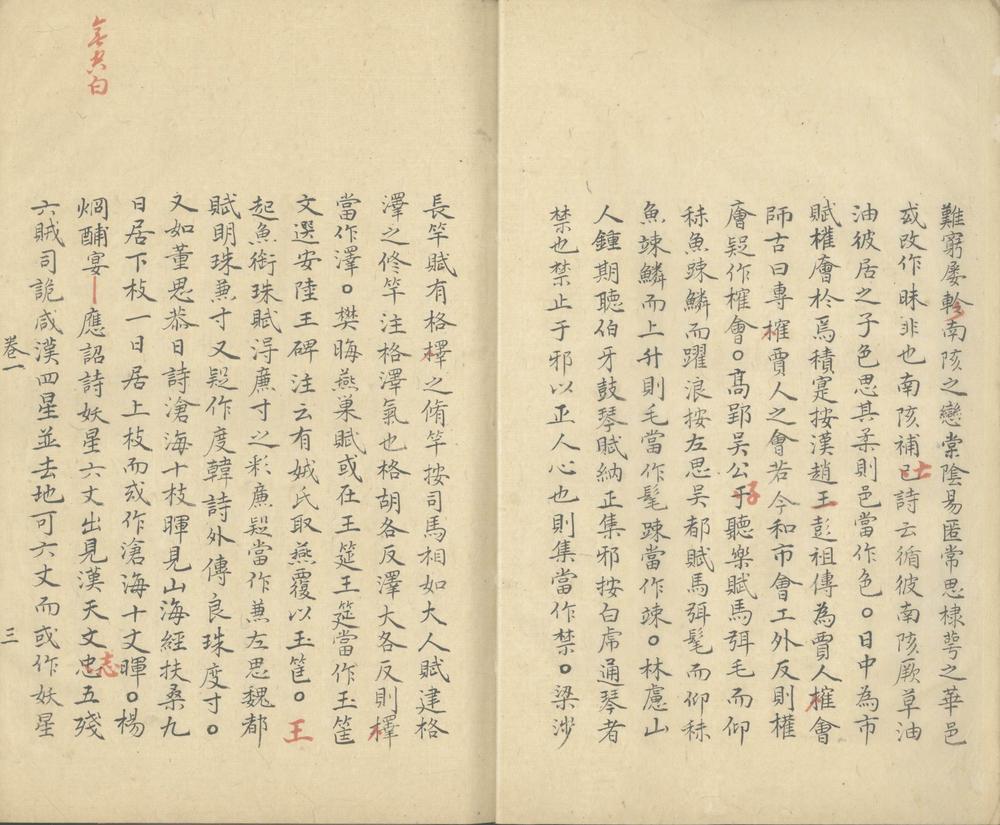 難窮屡軫南陔之戀棠陰易匿常思棣萼之華邑
或改作昧非也南陔補亡詩云循彼南陔厥草油
油彼居之子色思其柔則邑當作色○日中為市
賦權會於焉積寔按漢趙王彭祖傳為賈人榷會
師古曰專榷賈人之會若今和市會工外反則權
會疑作榷會○髙郢吴公子聽樂賦馬弭毛而仰
秣魚踈鱗而躍浪按左思吴都賦馬弭髦而仰秣
魚竦鱗而上升則毛當作髦踈當作竦○林慮山
人鍾期聽伯牙鼓琴賦納正集邪按白虎通琴者
禁也禁止于邪以正人心也則集當作禁○梁渉
長竿賦有格檡之脩竿按司馬相如大人賦建格
澤之修竿注格澤氣也格胡各反澤大各反則檡
當作澤○樊晦燕巢賦或在王筵王筵當作玉筐
文選安陸王碑注云有娀氏取燕覆以玉筐○王
起魚銜珠賦淂㢘寸之彩㢘疑當作兼左思魏都
賦明珠兼寸又疑作度韓詩外傳良珠度寸○
又如董思恭日詩滄海十枝暉見山海經扶桑九
日居下枝一日居上枝而或作滄海十丈暉○楊
烱酺宴應詔詩妖星六丈出見漢天文志五殘
六賊司詭咸漢四星並去地可六丈而或作妖星
卷一
三